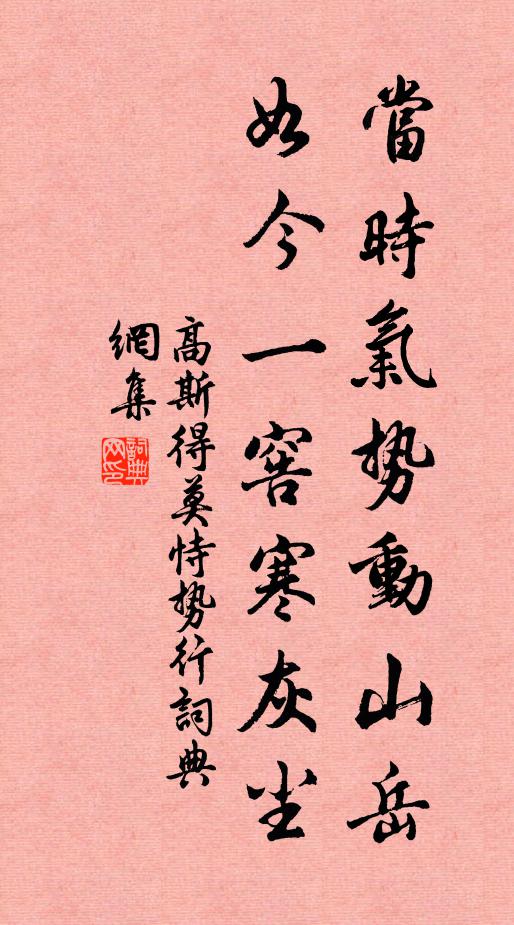 當時氣势動山岳
如今一窖寒灰尘
高斯得莫恃势行詞典
網集
詞典
网印